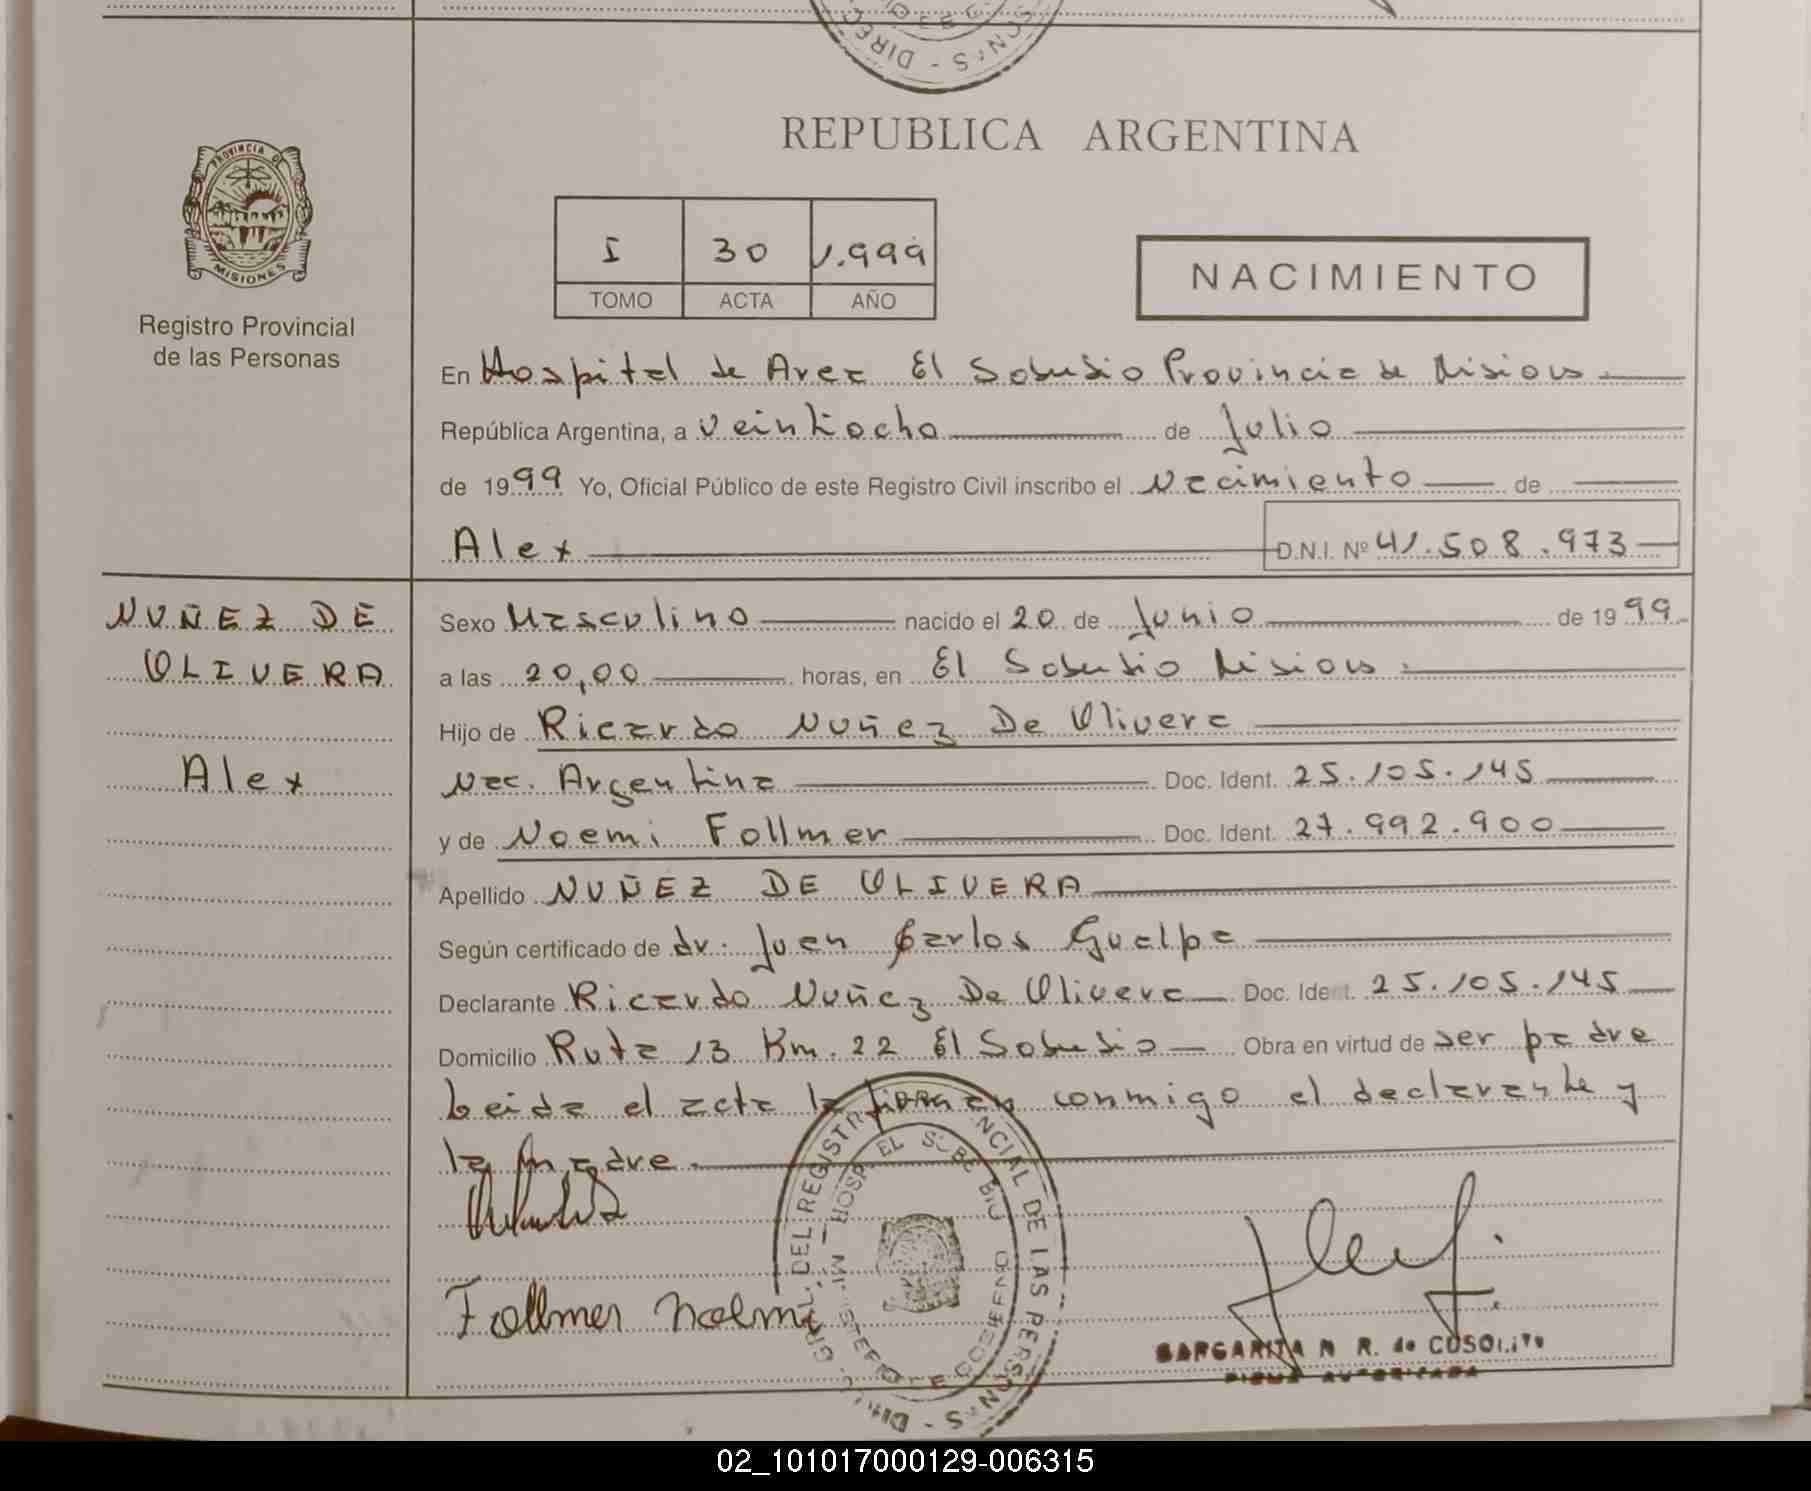 REPUBLICA ARGENTINA
PROVINCIA DE
MISIONES
Registro Provincial
de las Personas
I 30 1.999
TOMO ACTA AÑO
NACIMIENTO
En Hospital de Area El Soberbio Provincia de Misiones
República Argentina, a veintiocho de Julio
de 1999 Yo, Oficial Público de este Registro Civil inscribo el Nacimiento de
Alex D.N.I. Nº 41.508.973
NUÑEZ DE
OLIVERA
Alex
Sexo Masculino nacido el 20 de Junio de 1999
a las 20,00 horas, en El Soberbio Misiones
Hijo de Ricardo Nuñez De Olivera
Nac. Argentina Doc. Ident. 25.105.145
y de Noemi Follmer Doc. Ident. 27.992.900
Apellido NUÑEZ DE OLIVERA
Según certificado de dr. Juan Carlos Gualpa
Declarante Ricardo Nuñez De Olivera Doc. Ident. 25.105.145
Domicilio Ruta 13 Km. 22 El Soberbio Obra en virtud de ser padre
Leida el acta la firman conmigo el declarante y
la madre
Follmer Noemi
MARGARITA R. de
FIRMA AUTORIZADA
02_101017000129-006315